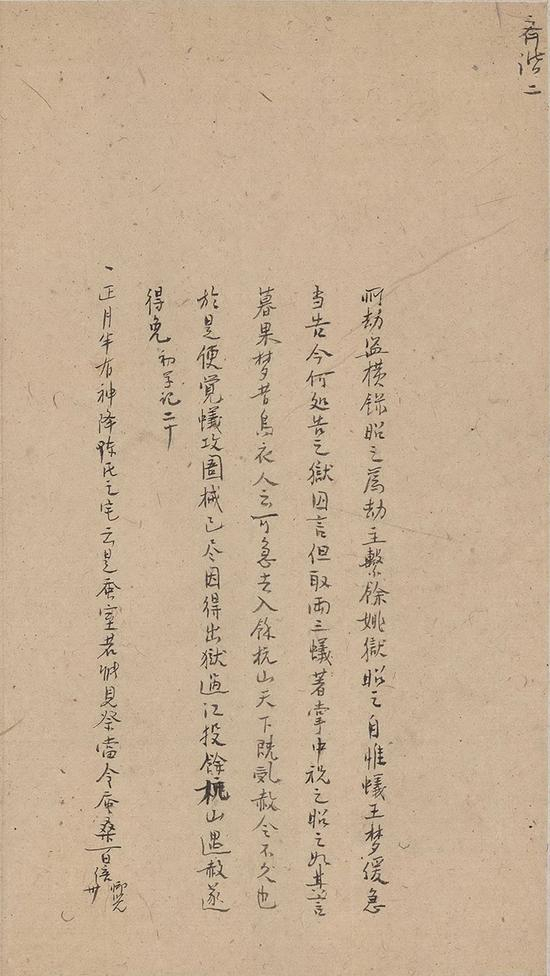 齐谐二
所劫盗横錄昭之為劫主繫餘姚獄昭之自惟蟻王梦緩急
当告今何処告之獄囚言但取两三蟻著掌中祝之昭之如其言
暮果梦昔烏衣人云可急去入餘杭山天下既乱赦令不久也
於是便覺蟻攻囹械已尽因得出獄過江投餘杭山遇赦遂
得免 初学记二十
正月半有神降陈氏之宅云是蚕室若能見祭當令蚕桑百倍